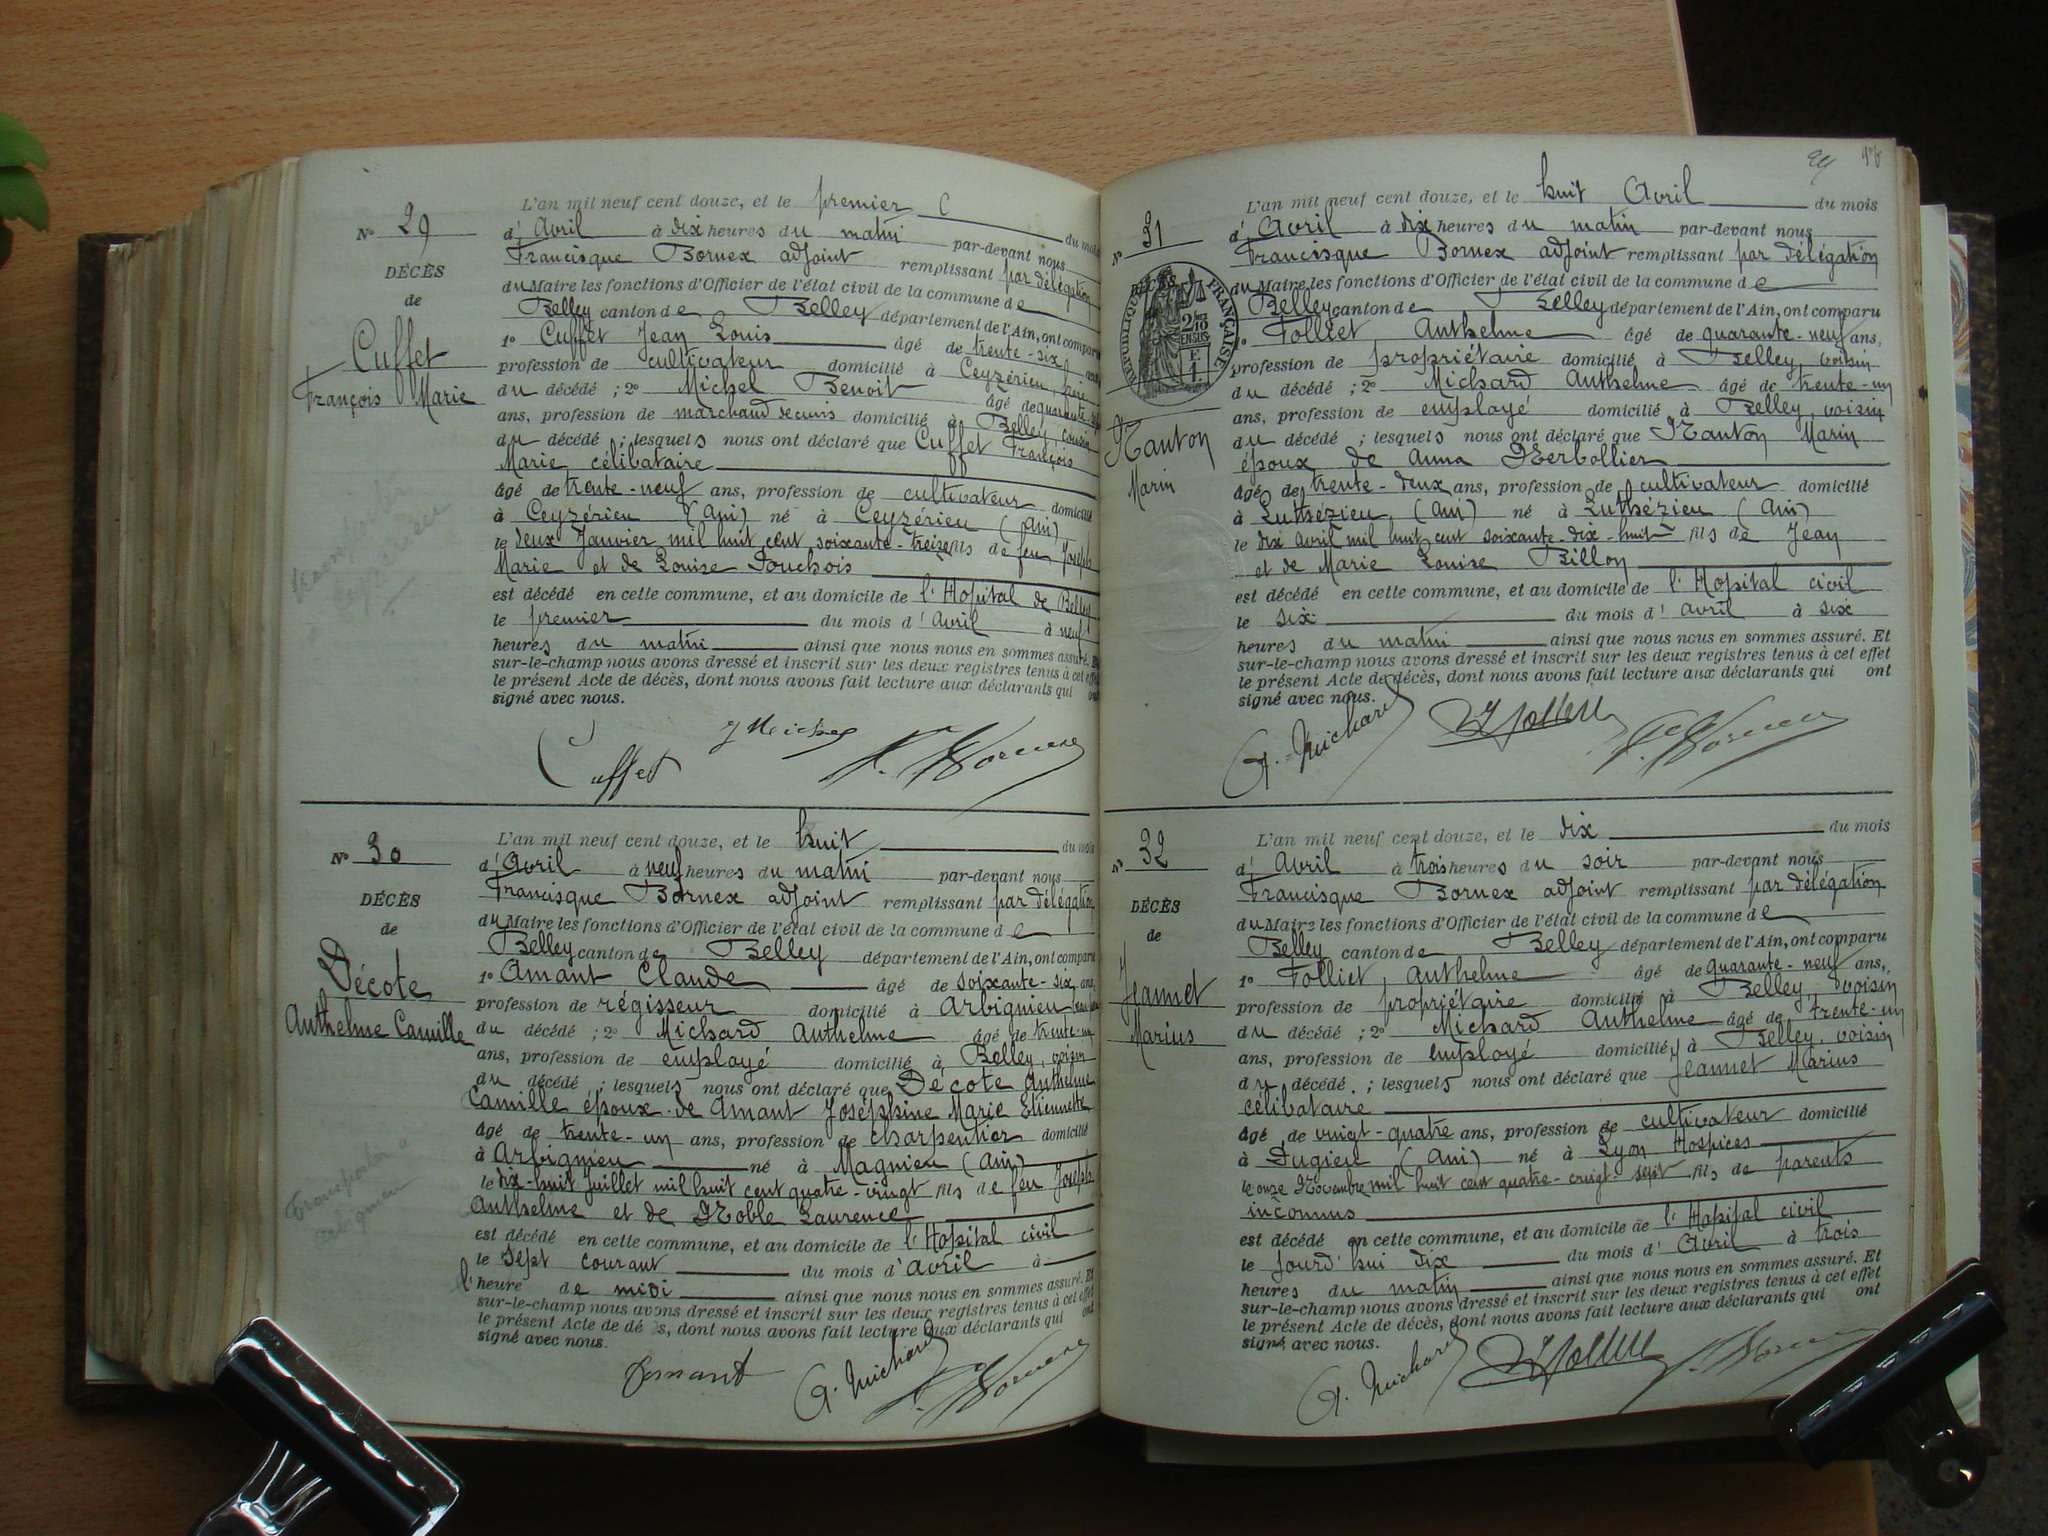 L'an mil neuf cent douze, et le premier
Nº 29
d'Avril à dix heures du matin par-devant nous
Francisque Bornex adjoint remplissant par délégation
DÉCÈS
de
du Maire les fonctions d'Officier de l'état civil de la commune de
Belley canton de Belley département de l'Ain, ont comparu
Cuffet
François Marie
1º Cuffet Jean Louis âgé de trente-six ans
profession de cultivateur domicilié à Ceyzérieu, frère
du décédé ; 2º Michel Benoit âgé de quarante
ans, profession de marchand de cuirs domicilié à Belley, cousin
du décédé ; lesquels nous ont déclaré que Cuffet François
Marie, célibataire
âgé de trente-neuf ans, profession de cultivateur domicilié
à Ceyzérieu (Ain) né à Ceyzérieu (Ain)
le deux Janvier mil huit cent soixante-treize fils de feu Joseph
Marie et de Louise Pouchois
est décédé en cette commune, et au domicile de l'Hopital de Belley
le premier du mois d'avril à neuf
heures du matin ainsi que nous nous en sommes assuré. Et
sur-le-champ nous avons dressé et inscrit sur les deux registres tenus à cet effet
le présent Acte de décès, dont nous avons fait lecture aux déclarants qui ont
signé avec nous.
Cuffet Michel F. Bornex
L'an mil neuf cent douze, et le huit du mois
Nº 30
d'Avril à neuf heures du matin par-devant nous
Francisque Bornex adjoint remplissant par délégation
DÉCÈS
de
du Maire les fonctions d'Officier de l'état civil de la commune de
Belley canton de Belley département de l'Ain, ont comparu
Décote
Anthelme Camille
1º Amant Claude âgé de soixante-six ans
profession de régisseur domicilié à Arbignieu
du décédé ; 2º Michard Anthelme âgé de trente-un
ans, profession de employé domicilié à Belley, voisin
du décédé ; lesquels nous ont déclaré que Décote Anthelme
Camille époux de Amant Joséphine Marie Etiennette
âgé de trente-un ans, profession de charpentier domicilié
à Arbignieu né à Magnieu (Ain)
le dix-huit Juillet mil huit cent quatre-vingt fils de feu Joseph
Anthelme et de Noble Laurence
Transporter à
Arbignieu
est décédé en cette commune, et au domicile de l'Hopital civil
le sept courant du mois d'avril à
l'heure de midi ainsi que nous nous en sommes assuré. Et
sur-le-champ nous avons dressé et inscrit sur les deux registres tenus à cet effet
le présent Acte de dé s, dont nous avons fait lecture aux déclarants qui ont
signé avec nous.
Amant A. Michard F. Bornex
L'an mil neuf cent douze, et le huit Avril du mois
Nº 31
d'Avril à dix heures du matin par-devant nous
Francisque Bornex adjoint remplissant par délégation
du Maire les fonctions d'Officier de l'état civil de la commune de
Belley canton de Belley département de l'Ain, ont comparu
RÉPUBLIQUE FRANÇAISE
1º Folliet Anthelme âgé de quarante-neuf ans,
profession de propriétaire domicilié à Belley, voisin
du décédé ; 2º Michard Anthelme âgé de trente-un
ans, profession de employé domicilié à Belley, voisin
Nanton
Marin
du décédé ; lesquels nous ont déclaré que Nanton Marin
époux de Anna Nerbollier
âgé de trente-deux ans, profession de cultivateur domicilié
à Luthézieu, (Ain) né à Luthézieu (Ain)
le dix avril mil huit cent soixante-dix-huit fils de Jean
et de Marie Louise Billon
est décédé en cette commune, et au domicile de l'Hopital civil
le six du mois d'avril à six
heures du matin ainsi que nous nous en sommes assuré. Et
sur-le-champ nous avons dressé et inscrit sur les deux registres tenus à cet effet
le présent Acte de décès, dont nous avons fait lecture aux déclarants qui ont
signé avec nous.
A. Michard Folliet F. Bornex
L'an mil neuf cent douze, et le dix du mois
Nº 32
d'Avril à trois heures du soir par-devant nous
Francisque Bornex adjoint remplissant par délégation
DÉCÈS
de
du Maire les fonctions d'Officier de l'état civil de la commune de
Belley canton de Belley département de l'Ain, ont comparu
Jeannet
Marius
1º Folliet, Anthelme âgé de quarante-neuf ans,
profession de propriétaire domicilié à Belley, voisin
du décédé ; 2º Michard Anthelme âgé de trente-un
ans, profession de employé domicilié à Belley, voisin
du décédé ; lesquels nous ont déclaré que Jeannet Marius
célibataire
âgé de vingt-quatre ans, profession de cultivateur domicilié
à Pugieu (Ain) né à Lyon Hospices
le onze Novembre mil huit cent quatre-vingt-sept fils de parents
inconnus
est décédé en cette commune, et au domicile de l'Hopital civil
le jourd'hui dix du mois d'Avril à trois
heures du matin ainsi que nous nous en sommes assuré. Et
sur-le-champ nous avons dressé et inscrit sur les deux registres tenus à cet effet
le présent Acte de décès, dont nous avons fait lecture aux déclarants qui ont
signé avec nous.
A. Michard Folliet F. Bornex